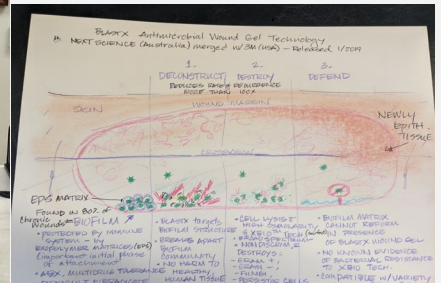 BlastX Antimicrobial Wound Gel Technology
NEXT SCIENCE (Australia) merged w/3M (USA) – Released 1/2019
1. 2. 3.
DECONSTRUCT DESTROY DEFEND
REDUCES RATE OF RECURRENCE
MORE THAN 100X
SKIN
WOUND MARGIN
NEWLY
EPITH.
TISSUE
EPS MATRIX
FOUND IN 80% OF
chronic
Wounds
BIOFILM
• PROTECTED BY IMMUNE
SYSTEM – by
EXOPOLYMER MATRICES (EPS)
(important initial phase
of attachment
• ABX, MULTIDRUG TOLERANCE
• BLASTX targets
BIOFILM STRUCTURE
• BREAKS APART
BIOFILM
COMMUNITY
• NO HARM TO
HEALTHY
HUMAN TISSUE
• CELL LYSIS &
HIGH OSMOLARITY
& XBIO TECH
• BROAD SPECTRUM
DESTROYS -
GRAM -
FUNGI
PERSISTER CELLS
• BIOFILM MATRIX
CANNOT REFORM
IN PRESENCE
OF BLASTX WOUND GEL
• NO KNOWN EVIDENCE
OF BACTERIAL RESISTANCE
TO XBIO TECH.
• COMPATIBLE W/VARIETY